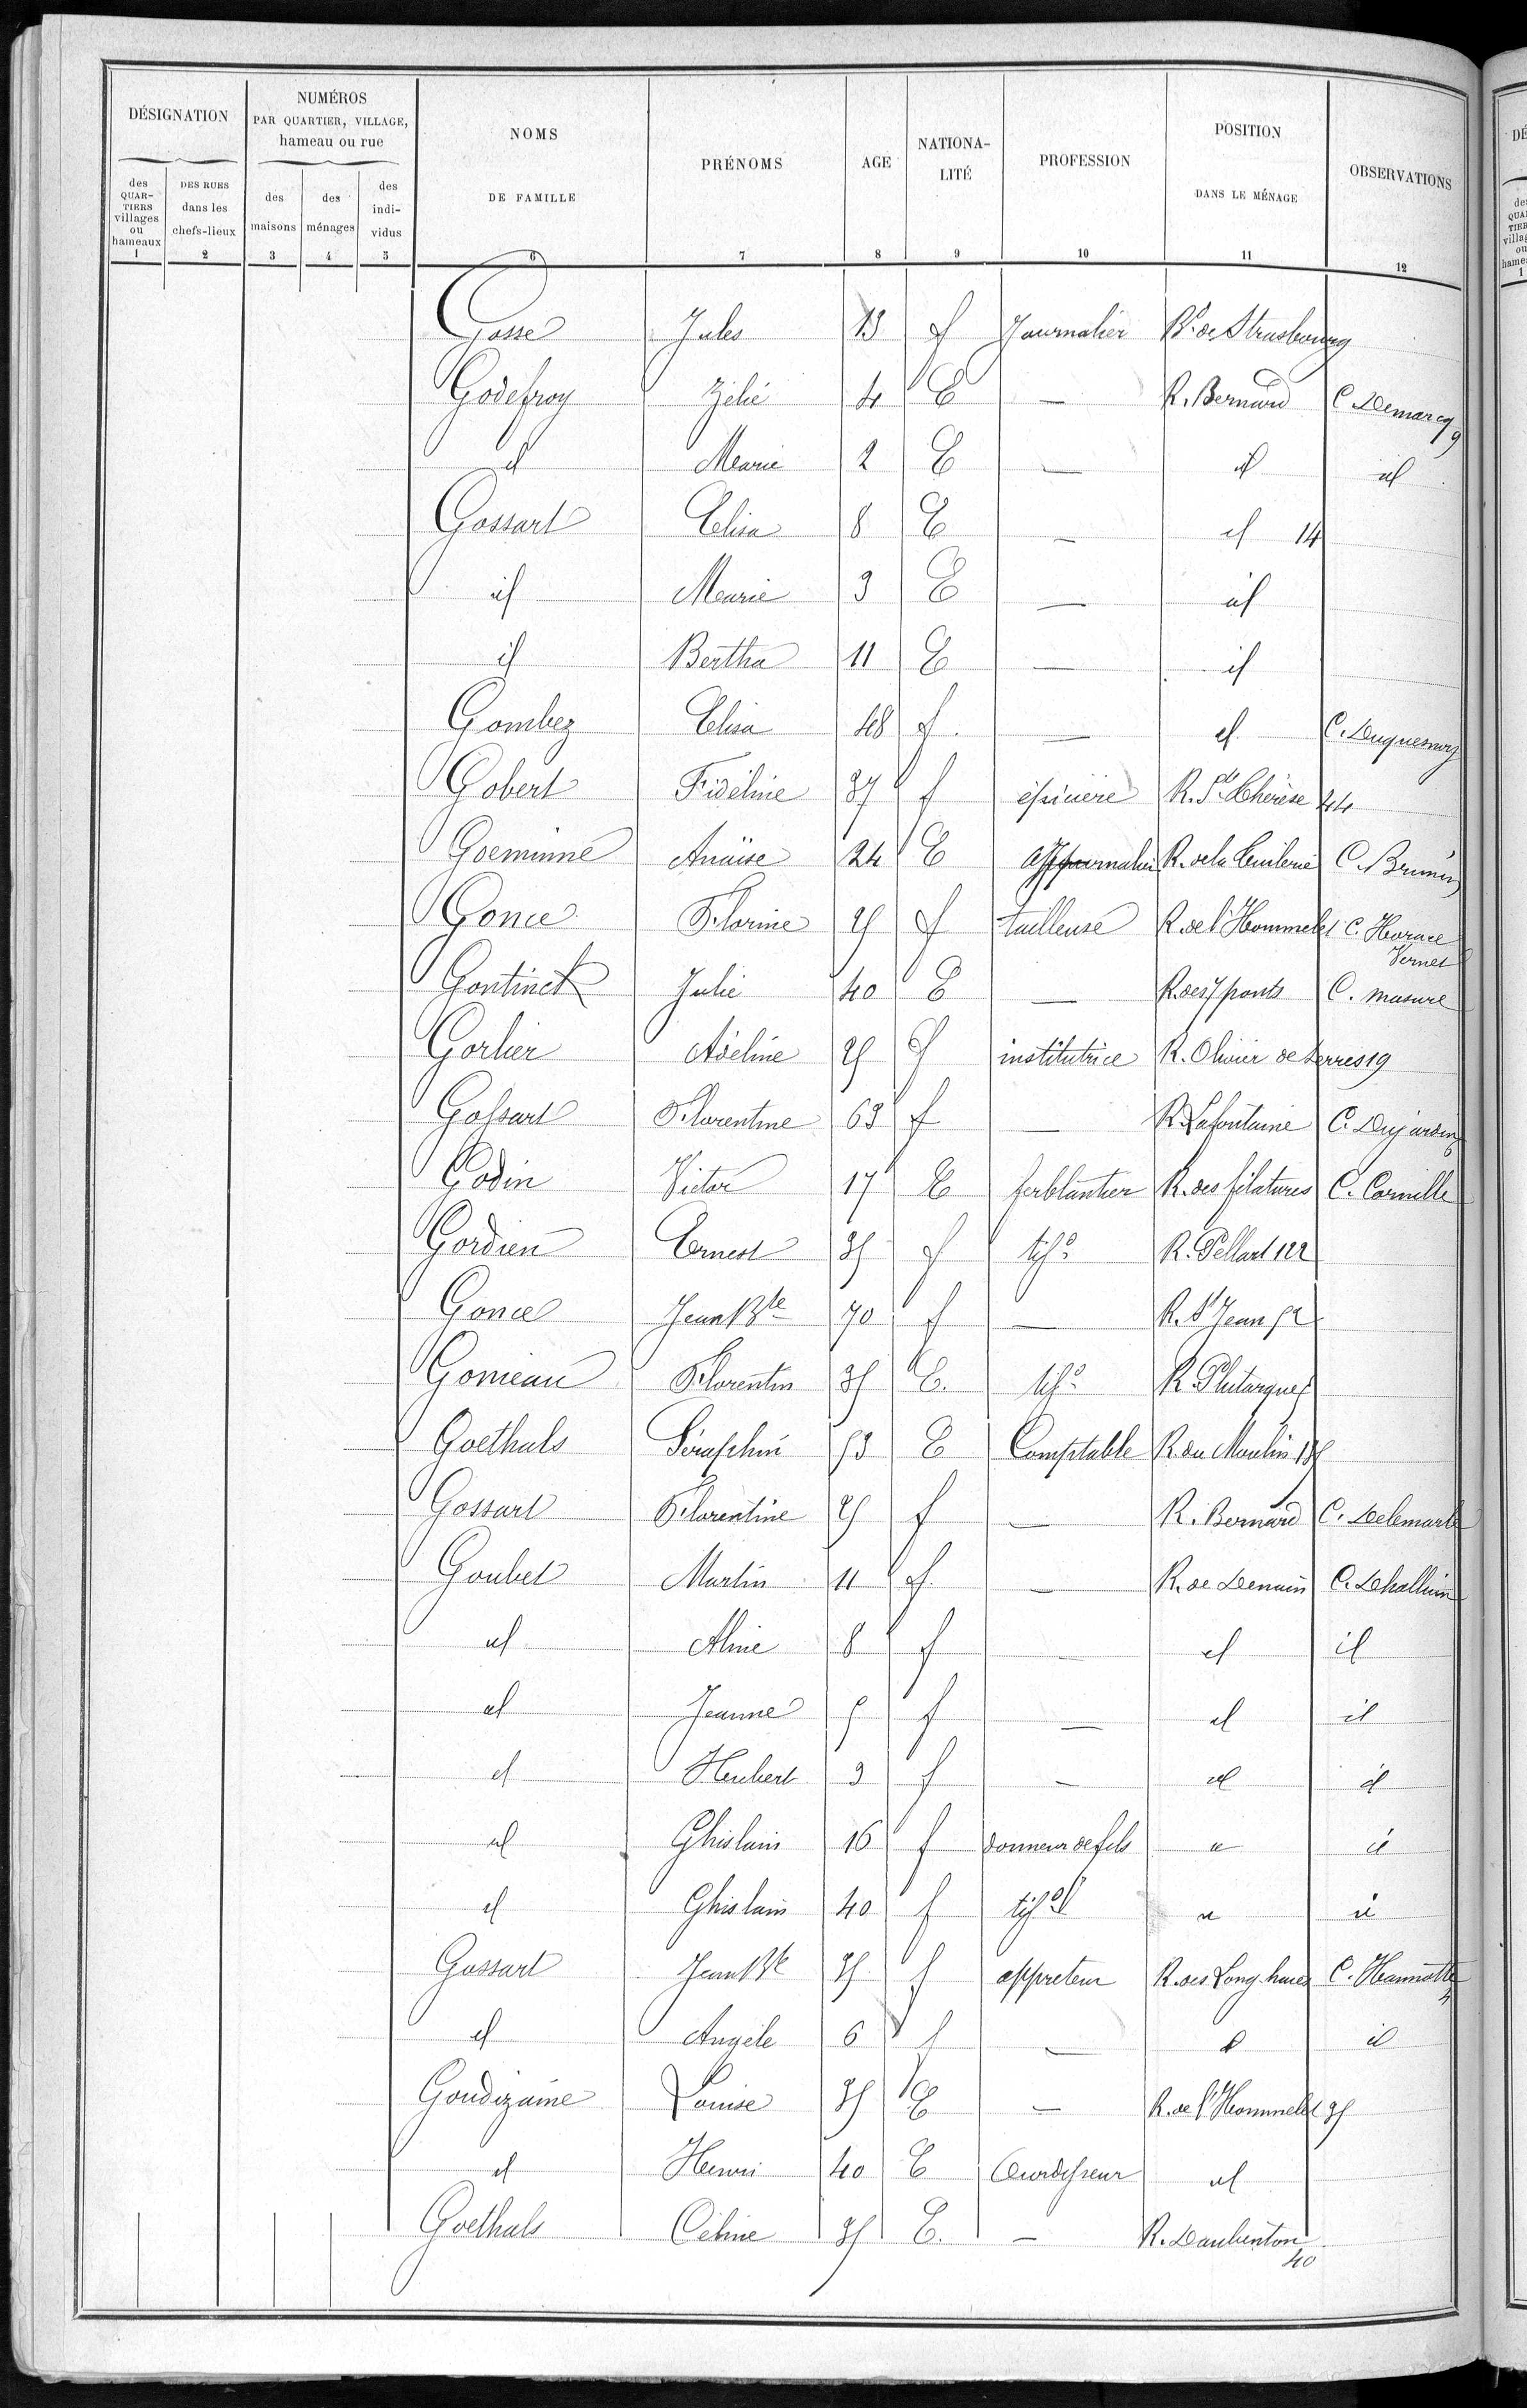 DÉSIGNATION
NUMÉROS
PAR QUARTIER, VILLAGE,
hameau ou rue
NOMS
DE FAMILLE
PRÉNOMS
AGE
NATIONA-
LITÉ
PROFESSION
POSITION
DANS LE MÉNAGE
OBSERVATIONS
des QUAR-TIERS villages ou hameaux
DES RUES dans les chefs-lieux
des maisons
des ménages
des indi-vidus
1 2 3 4 5 6 7 8 9 10 11 12
Gosse Jules 13 f Journalier Bd de Strasbourg
Godefroy Zélie 4 E — R. Bernard C Demarcq 9
id Marie 2 E — id id
Gossart Elisa 8 E — id 14
id Marie 3 E — id
id Bertha 11 E — id
Gombez Elisa 48 f — id C. Duquesnoy
Gobert Fidéline 37 f épicière R. Ste Thérèse 44
Goeminne Anaïse 24 E journalier R. de la Tuilerie C. Brunin
Gonce Florine 25 f tailleuse R. de l'Hommelet C. Horace Vernet
Gontinck Julie 40 E — R. des 7 ponts C. masure
Gorlier Adeline 25 f institutrice R. Olivier de Serres 19
Gossart Florentine 63 f — R. Lafontaine C. Dujardin 6
Godin Victor 17 E ferblantier R. des filatures C. Cornille
Gordien Ernest 35 f tisd R. Pellart 122
Gonce Jean Bte 70 f — R. St Jean 52
Gomeau Florentin 35 E. tisd R. Plutarque 5
Goethals Séraphin 53 E Comptable R. du Moulin 135
Gossart Florentine 25 f — R. Bernard C. Delemarle
Goubet Martin 11 f — R. de Denain C. Dhalluin
id Aline 8 f — id id
id Jeanne 5 f — id id
id Hubert 3 f — id id
id Ghislain 16 f donneur de fils id id
id Ghislain 40 f tisd id id
Gossart Jean Bte 35 f appreteur R. des Long. haies C. Hannotte 4
id Angèle 6 f — id id
Goudizaine Louise 35 E — R. de l'Hommelet 35
id Henri 40 E Ourdisseur id
Goethals Céline 35 E. — R. Daubenton 40